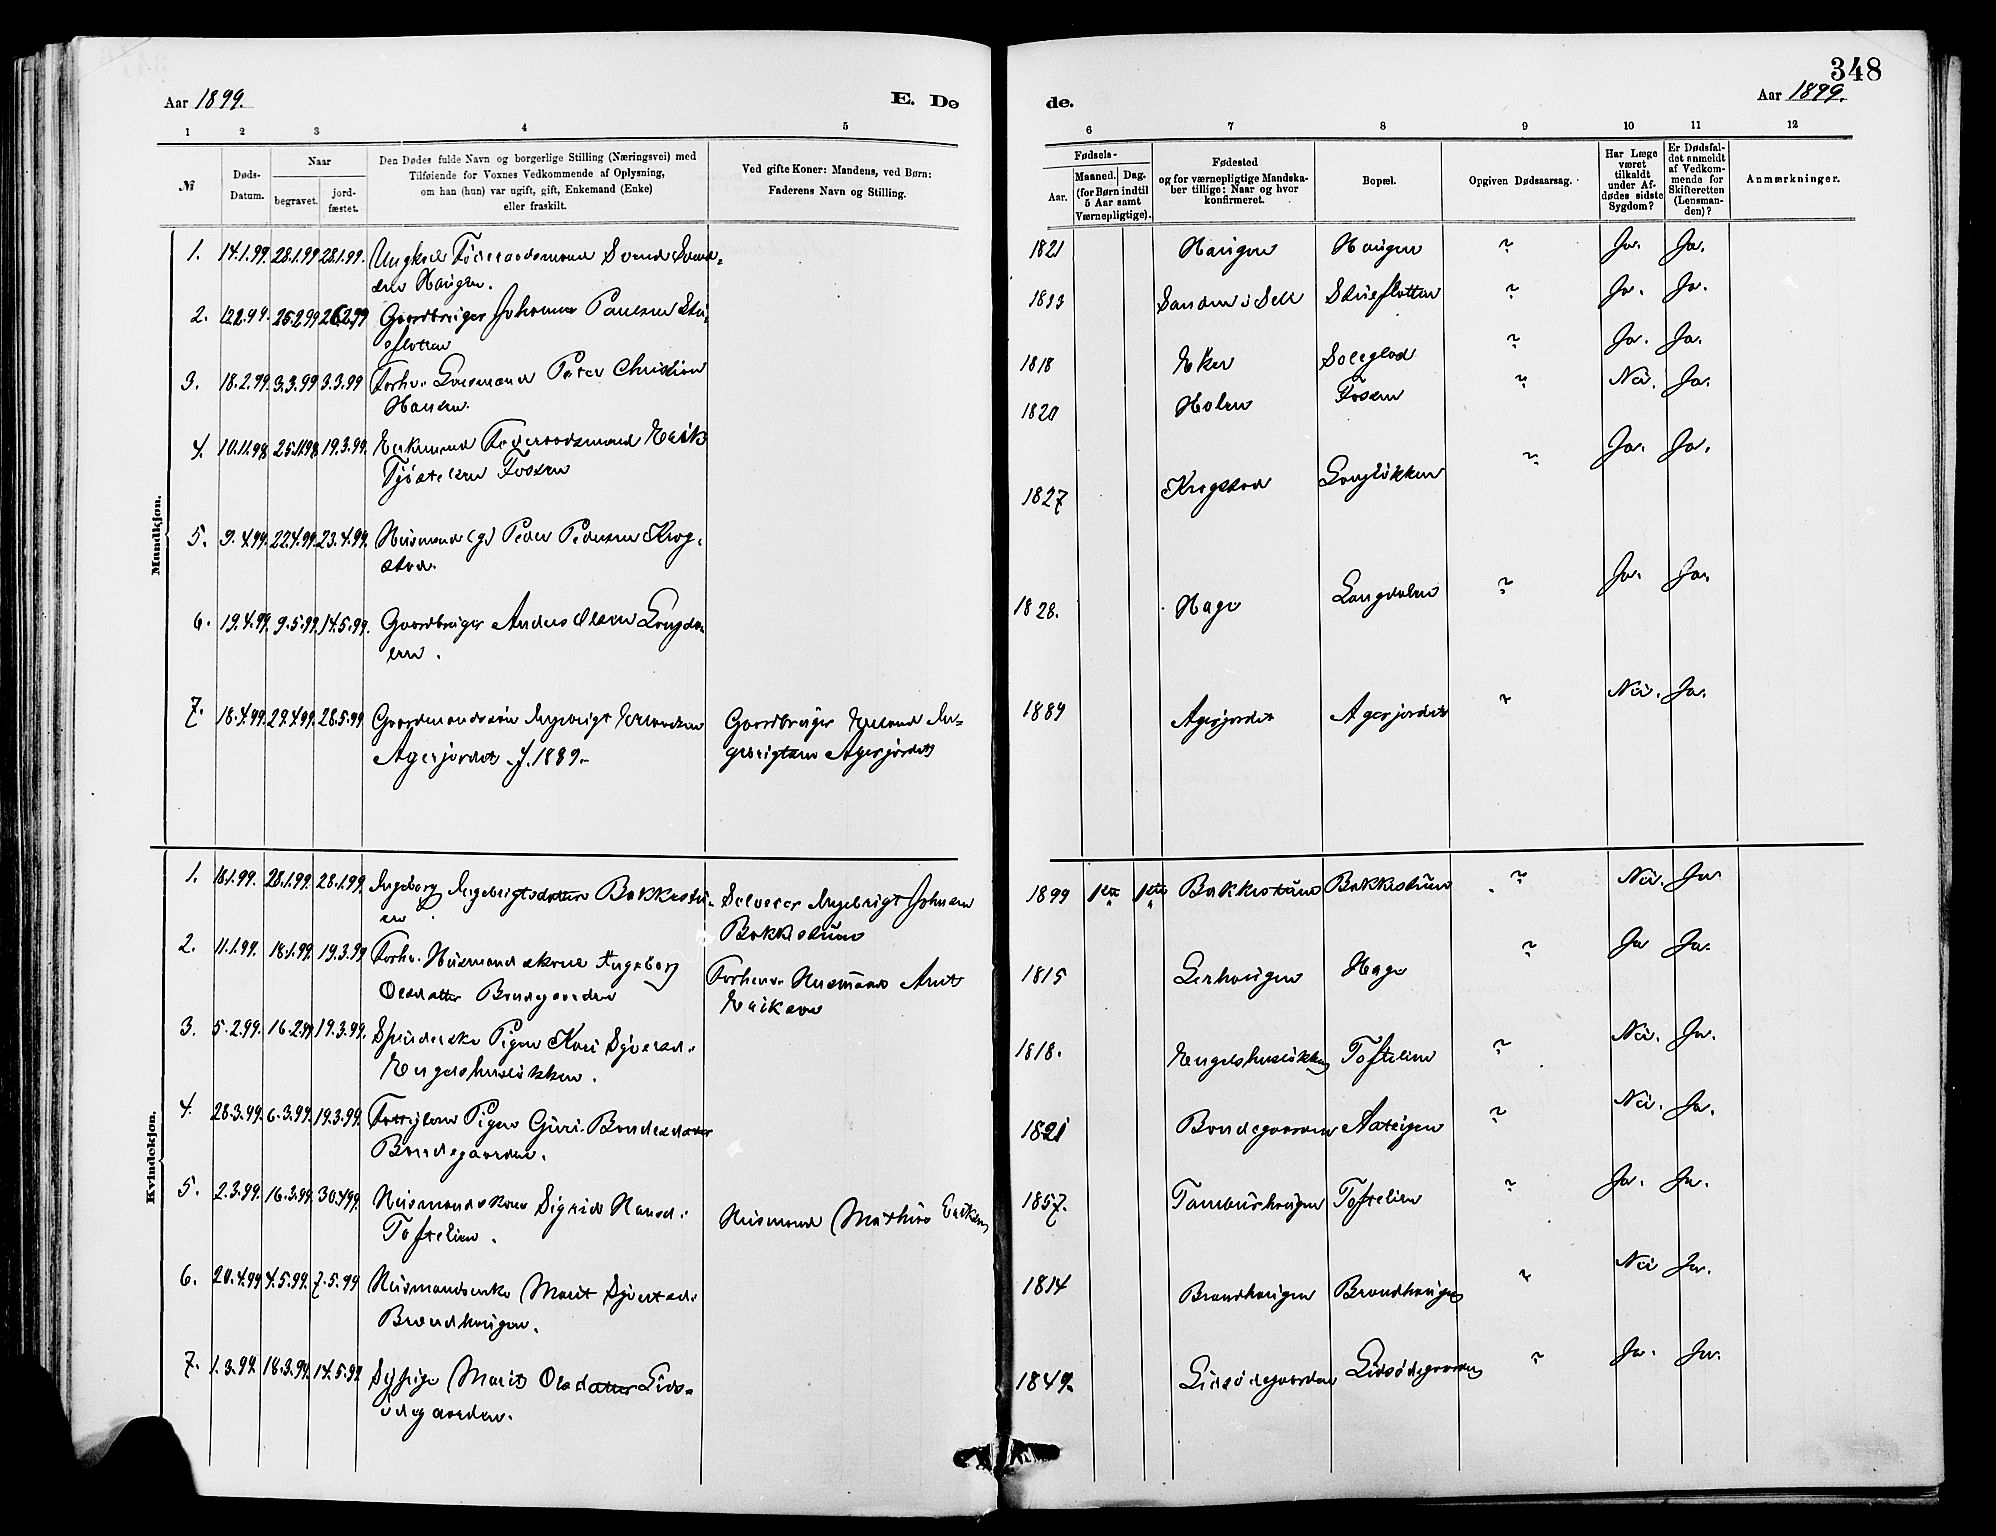 348
Aar 1899.
E. Dø
de.
Aar 1899.
1 2 3 4 5 6 7 8 9 10 11 12
№
Døds-
Datum.
Naar
begravet.
jord-
fæstet.
Den Dødes fulde Navn og borgerlige Stilling (Næringsvei) med
Tilføiende for Voxnes Vedkommende af Oplysning,
om han (hun) var ugift, gift, Enkemand (Enke)
eller fraskilt.
Ved gifte Koner: Mandens, ved Børn:
Faderens Navn og Stilling.
Fødsels-
Aar.
Maaned. Dag.
(for Børn indtil
5 Aar samt
Værnepligtige).
Fødested
og for værnepligtige Mandska-
ber tillige: Naar og hvor
konfirmeret.
Bopæl.
Opgiven Dødsaarsag.
Har Læge
været
tilkaldt
under Af-
dødes sidste
Sygdom?
Er Dødsfal-
det anmeldt
af Vedkom-
mende for
Skifteretten
(Lensman-
den)?
Anmærkninger.
Mandkjøn.
1. 14.1.99. 28.1.99 28.1.99. Ungkarl Føderaadsmand Svend Svend-
sen Haugen. 1821 Haugen Haugen ? Ja. Ja.
2. 12.2.99. 26.2.99 26.2.99 Gaardbruger Johannes Paulsen Stu-
eflotten 1813 Sanden i Sell Stueflotten ? Ja. Ja.
3. 18.2.99. 3.3.99 3.3.99 Forhv. Peter Christian
Hansen. 1818 Eker Soleglad ? Ja. Ja.
4. 10.11.98 25.11.98 19.3.99. Enkemand Føderaadsmand Erik
Tjøstelsen Fossen 1820 Holen Fossen ? Nei. Ja.
5. 9.4.99. 22.4.99. 23.4.99. Husmand (g) Peder Pedersen Krog-
stad. 1827 Krogstad Langløkken ? Ja. Ja.
6. 19.4.99. 9.5.99. 14.5.99. Gaardbruger Anders Olsen Langda-
len. 1828. Hage Langdalen ? Ja. Ja.
7. 18.4.99. 27.4.99. 28.5.99. Gaardmandssøn Ingebrigt Erlandsen
Agerjordet f. 1889. Gaardbruger Erland In-
gebrigtsen Agerjordet 1889 Agerjordet Agerjordet ? Nei. Ja.
Kvindekjøn.
1. 18.1.99. 28.1.99. 28.1.99. Ingeborg Ingebrigtsdatter Bakkestu-
en Selveier Ingebrigt Johnsen
Bakkestuen 1899 1ste 1ste Bakkestuen Bakkestuen ? Nei. Ja.
2. 11.1.99. 18.1.99. 19.3.99 Forhv. Husmandskone Ingeborg
Olsdatter Bondegaarden Forhenv. Husmand Amt
Eriksen 1815 Lerhaugen Hage ? Ja Ja.
3. 5.2.99. 16.2.99. 19.3.99. Spedalske Pigen Kari Syversd.
Engelshusløkken. 1818. Engelshusløkken Toftelien ? Nei. Ja.
4. 28.3.99. 6.3.99. 19.3.99. Fattiglem Pigen Guri Bondesdatter
Bondegaarden. 1821 Bondegaarden Aateigen ? Nei. Ja.
5. 2.3.99. 16.3.99. 30.4.99. Husmandskone Sigrid Hansd.
Toftelien. Husmand Mathias Eriksen 1857. Tamburhaugen Toftelien ? Ja. Ja.
6. 20.4.99 4.5.99. 7.5.99 Husmandsenke Marit Syvertsd.
Brandhaugen. 1814 Brandhaugen Brandhaugen ? Nei Ja.
7. 1.3.99. 18.3.99. 14.5.99 Sypige Marit Olsdatter Lids-
ødegaarden. 1849. Lidsødegaarden Lidsødegaarden ? Ja. Ja.